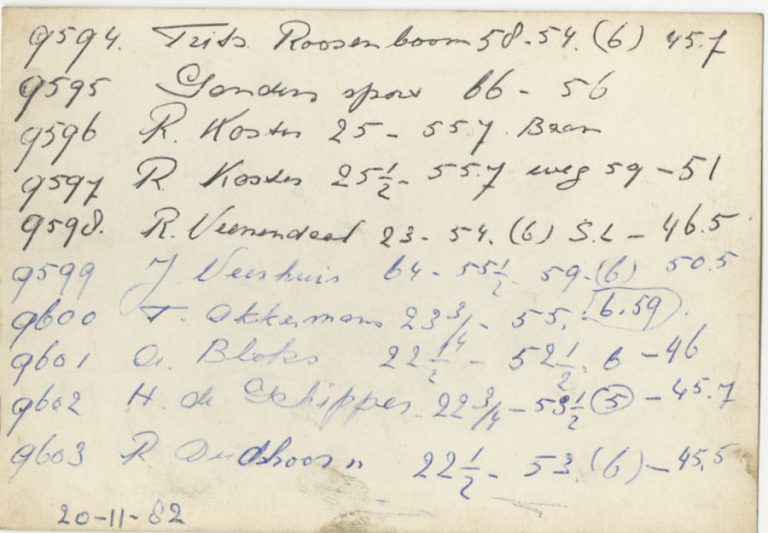 9594. Frits Roosenboom 58-54. (6) 45.7
9595 66 - 56
9596 R. Koster 25 - 55.7 Baan
9597 R Koster 25½ - 55.7 weg 59 - 51
9598. R. Veenendaal 23 - 54. (6) S.L - 46.5
9599 J Veerhuis 64 - 55½ - 59 - (6) 50.5
9600 T. Akkermans 23¾ - 55. - 6.59.
9601 A. Bloks 22½ - 52½. 6 - 46
9602 H. de Schipper 22¾ - 53½ (5) - 45.7
9603 R. Oudshoorn 22½ - 53. (6) - 45.5
20-11-82